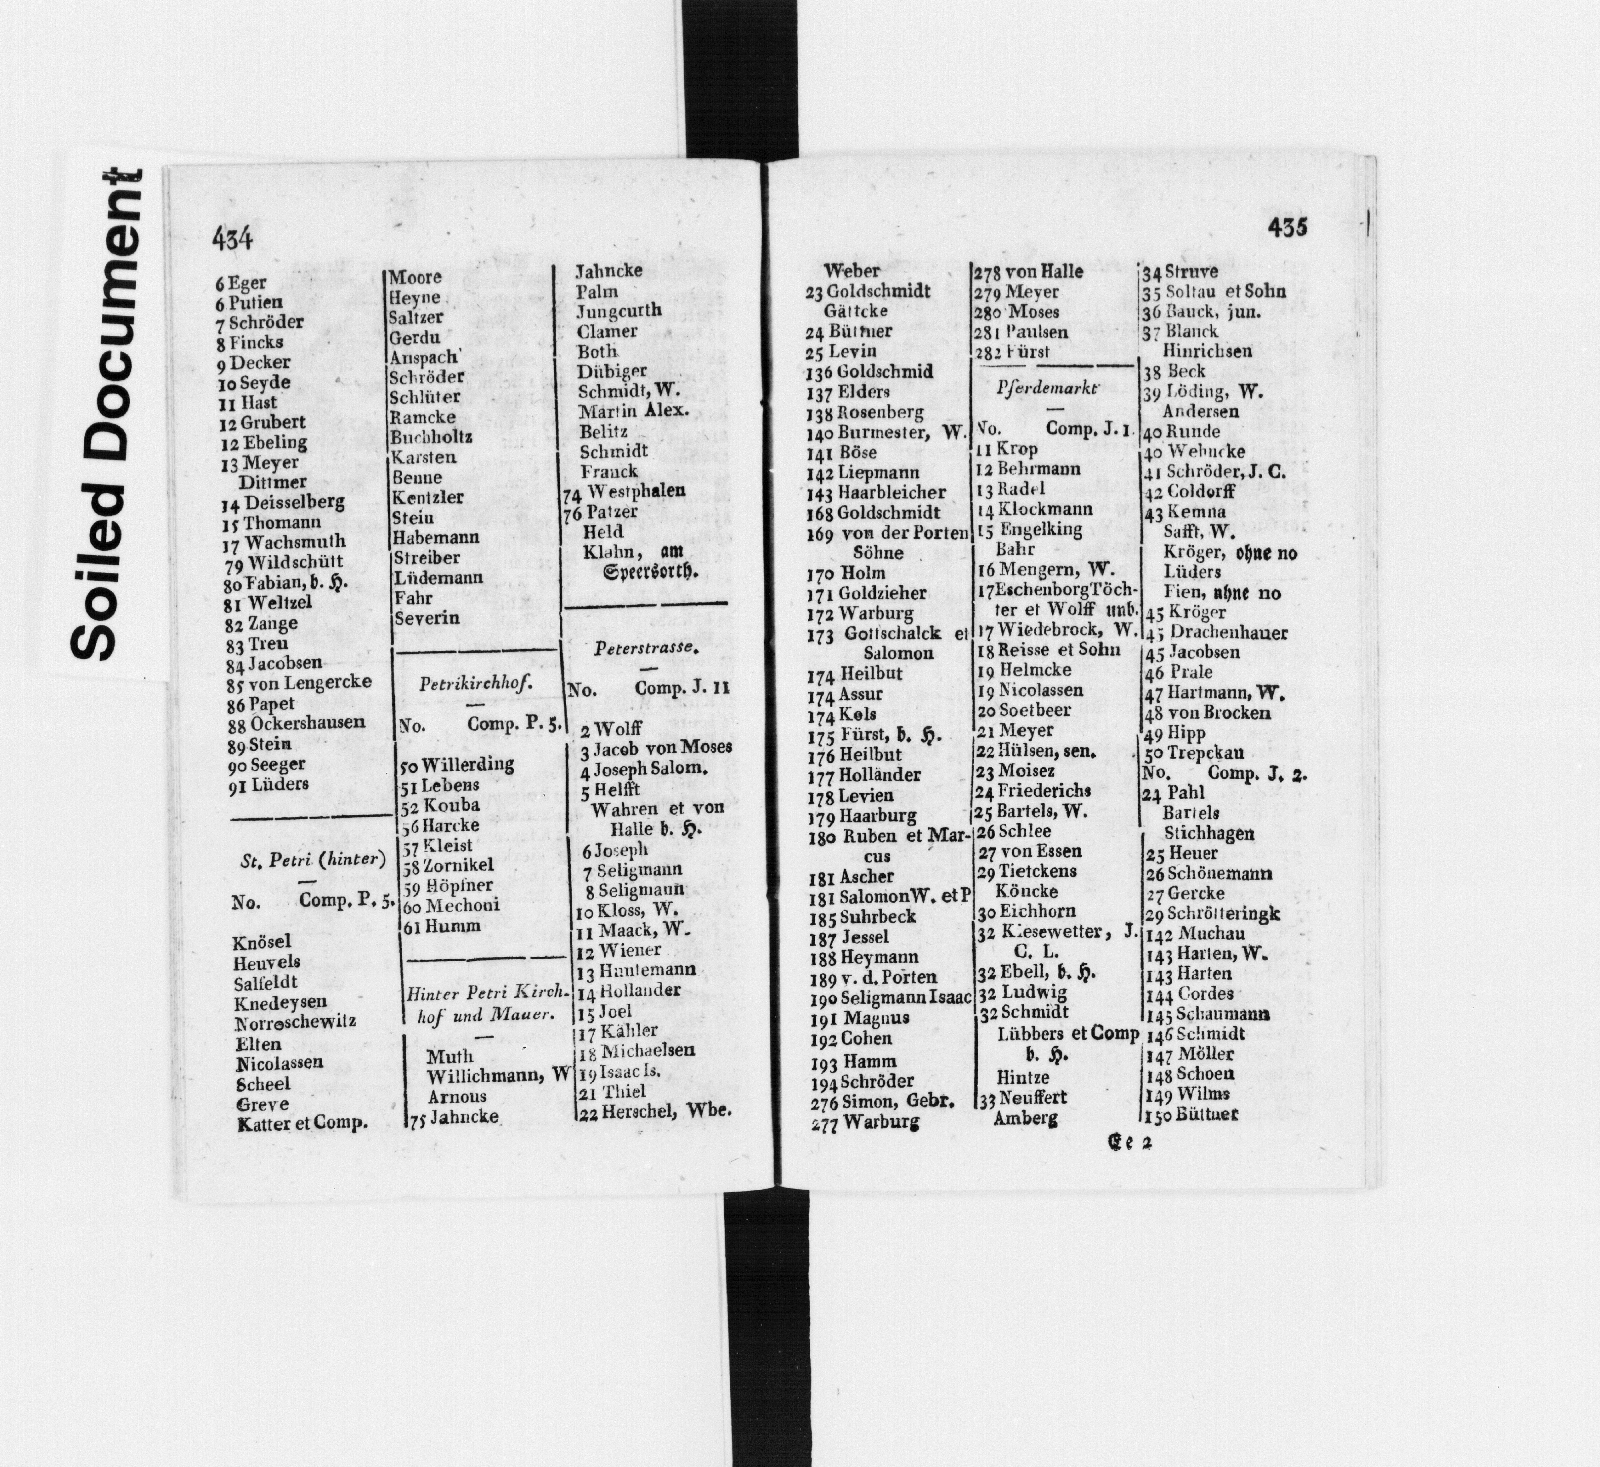 Soiled Document
434
6 Eger
6 Putien
7 Schröder
8 Fincks
9 Decker
10 Seyde
11 Hast
12 Grubert
12 Ebeling
13 Meyer
Dittmer
14 Deisselberg
15 Thomann
17 Wachsmuth
79 Wildschütt
80 Fabian, b. H.
81 Weltzel
82 Zange
83 Treu
84 Jacobsen
85 von Lengercke
86 Papet
88 Ockershausen
89 Stein
90 Seeger
91 Lüders
St. Petri (hinter)
No. Comp. P. 5.
Knösel
Heuvels
Salfeldt
Knedeysen
Norroschewitz
Elten
Nicolassen
Scheel
Greve
Katter et Comp.
Moore
Heyne
Saltzer
Gerdu
Anspach
Schröder
Schlüter
Ramcke
Buchholtz
Karsten
Benne
Kentzler
Stein
Habemann
Streiber
Lüdemann
Fahr
Severin
Petrikirchhof.
No. Comp. P. 5.
50 Willerding
51 Lebens
52 Kouba
56 Harcke
57 Kleist
58 Zornikel
59 Höpfner
60 Mechoni
61 Humm
Hinter Petri Kirch-
hof und Mauer.
Muth
Willichmann, W
Arnous
75 Jahncke
Jahncke
Palm
Jungcurth
Clamer
Both
Dübiger
Schmidt, W.
Martin Alex.
Belitz
Schmidt
Franck
74 Westphalen
76 Patzer
Held
Klahn, am
Speersorth.
Peterstrasse.
No. Comp. J. 11
2 Wolff
3 Jacob von Moses
4 Joseph Salom.
5 Helfft
Wahren et von
Halle b. H.
6 Joseph
7 Seligmann
8 Seligmann
10 Kloss, W.
11 Maack, W.
12 Wiener
13 Hautemann
14 Hollander
15 Joel
17 Kähler
18 Michaelsen
19 Isaac Is.
21 Thiel
22 Herschel, Wbe.
435
Weber
23 Goldschmidt
Gättcke
24 Büttner
25 Levin
136 Goldschmid
137 Elders
138 Rosenberg
140 Burmester, W.
141 Böse
142 Liepmann
143 Haarbleicher
168 Goldschmidt
169 von der Porten
Söhne
170 Holm
171 Goldzieher
172 Warburg
173 Gottschalck et
Salomon
174 Heilbut
174 Assur
174 Kels
175 Fürst, b. H.
176 Heilbut
177 Holländer
178 Levien
179 Haarburg
180 Ruben et Mar-
cus
181 Ascher
181 Salomon W. et P
185 Suhrbeck
187 Jessel
188 Heymann
189 v. d. Porten
190 Seligmann Isaac
191 Magnus
192 Cohen
193 Hamm
194 Schröder
276 Simon, Gebr.
277 Warburg
278 von Halle
279 Meyer
280 Moses
281 Paulsen
282 Fürst
Pferdemarkt
No. Comp. J. 1.
11 Krop
12 Behrmann
13 Radel
14 Klockmann
15 Engelking
Bahr
16 Mengern, W.
17 Eschenborg Töch-
ter et Wolff unb.
17 Wiedebrock, W.
18 Reisse et Sohn
19 Helmcke
19 Nicolassen
20 Soetbeer
21 Meyer
22 Hülsen, sen.
23 Moisez
24 Friederichs
25 Bartels, W.
26 Schlee
27 von Essen
29 Tietckens
Köncke
30 Eichhorn
32 Kiesewetter, J.
C. L.
32 Ebell, b. H.
32 Ludwig
32 Schmidt
Lübbers et Comp
b. H.
Hintze
33 Neuffert
Amberg
34 Struve
35 Soltau et Sohn
36 Bauck, jun.
37 Blanck
Hinrichsen
38 Beck
39 Löding, W.
Andersen
40 Runde
40 Wehncke
41 Schröder, J. C.
42 Coldorff
43 Kemna
Safft, W.
Kröger, ohne no
Lüders
Fien, ohne no
45 Kröger
45 Drachenhauer
45 Jacobsen
46 Prale
47 Hartmann, W.
48 von Brocken
49 Hipp
50 Trepckau
No. Comp. J. 2.
24 Pahl
Bartels
Stichhagen
25 Heuer
26 Schönemann
27 Gercke
29 Schrötteringk
142 Muchau
143 Harten, W.
143 Harten
144 Cordes
145 Schaumann
146 Schmidt
147 Möller
148 Schoen
149 Wilms
150 Büttner
Ee 2